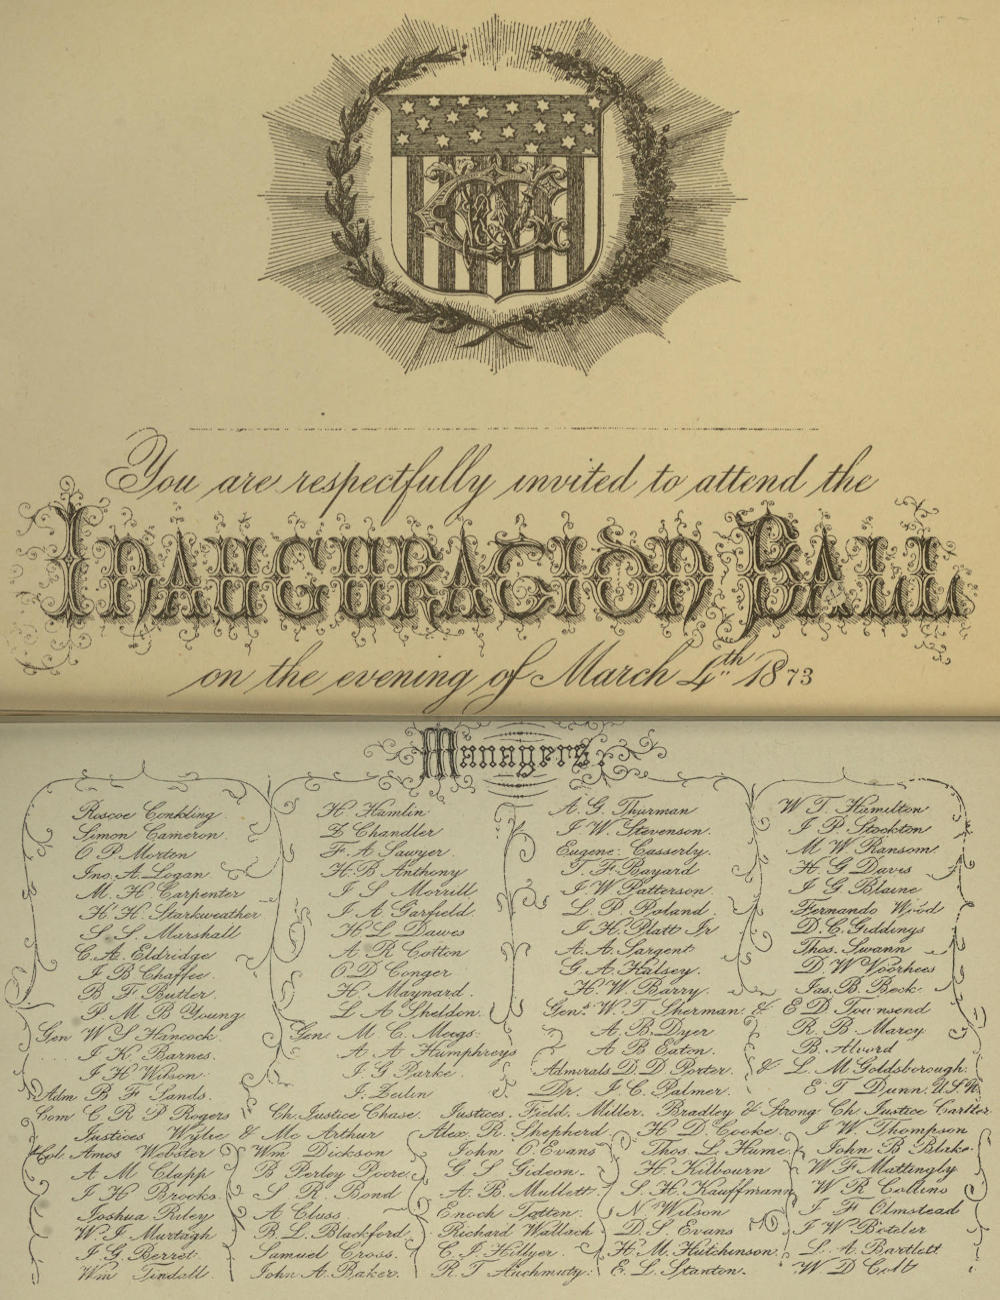 You are respectfully invited to attend the
INAUGURATION BALL
on the evening of March 4th 1873
Managers
Roscoe Conkling H Hamlin A. G. Thurman W T. Hamilton
Simon Cameron Z Chandler J. W. Stevenson. J. P. Stockton
O P. Morton F. A. Sawyer. Eugene Casserly. M W Ransom.
Jno. A. Logan H. B Anthony T. F. Bayard H. G Davis
M. H Carpenter J. S. Morrill J W Patterson. J G Blaine
H. H. Starkweather J A Garfield. L P. Poland. Fernando Wood
S. S. Marshall H L Dawes J. H. Platt Jr D. C. Giddings
C. A. Eldridge A R Cotton A. A. Sargent Thos. Swann
J B Chaffee. O. D Conger G. A. Halsey. D. W Voorhees
B F Butler. H. Maynard. H. W. Barry. Jas. B. Beck.
P M B Young L A Sheldon. Genls W. T Sherman & E D Townsend
Gen W S Hancock. Gen M. C. Meigs. A. B. Dyer R. B Marcy
J. K. Barnes. A A Humphreys A B Eaton. B. Alvord
J H Wilson. J G Parke. Admirals D. D. Porter. & L. M Goldsborough.
Adm B F Sands. J. Zeilin Dr. J. C. Palmer. E T Dunn. U.S.N.
Com C R P Rogers Ch. Justice Chase. Justices. Field. Miller. Bradley & Strong. Ch Justice Cartter
Justices Wylie & Mc Arthur Alex R. Shepherd H D. Cooke. J W Thompson
Col. Amos Webster Wm Dickson John O. Evans Thos. L. Hume. John B Blake.
A M Clapp B Perley Poore. G S Gideon. H Kilbourn W F Mattingly
J H Brooks S R. Bond A. B. Mullett. S. H. Kauffmann W R Collins
Joshua Riley A Cluss. Enoch Totten. N. Wilson J F Olmstead
W. J Murtagh B. L. Blackford. Richard Wallach D. S Evans J W Boteler
J. G. Berret. Samuel Cross. C. J. Hillyer. H. M. Hutchinson. L. A. Bartlett
Wm Tindall. John A. Baker. R. T Auchmuty. E. L. Stanton. W D Colt